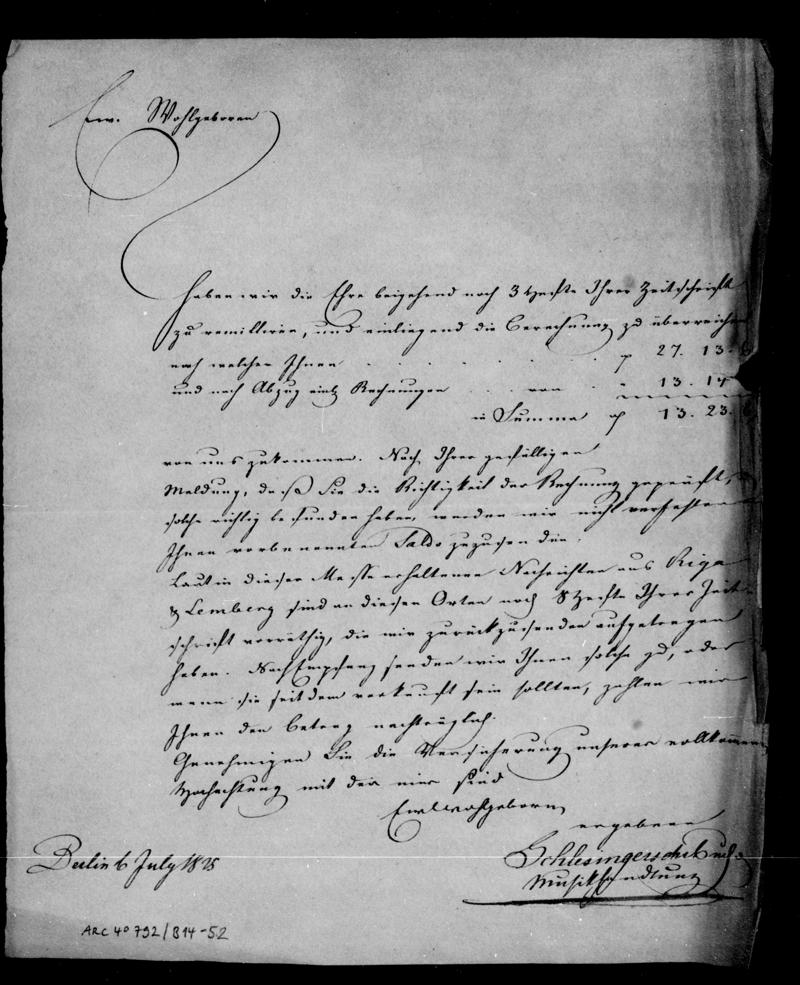 Ew. Wohlgeboren
haben wir die Ehre beigehend noch 3 Hefte Ihrer Zeitschrift
zu remittiren, und einliegend die Berechnung zu überreichen
nach welcher Ihnen . . . . . . 27. 13. 6
und nach Abzug eines Rechnungen . . . von . . 13. 14
in Summa 13. 23. 6
von uns zukommen. Nach Ihrer gefälligen
Meldung, daß Sie die Richtigkeit der Rechnung geprüft,
solche richtig befunden haben, werden wir nicht verfehlen
Ihnen vorbenannten Saldo zuzusenden.
Laut in dieser Messe erhaltenen Nachrichten aus Riga
& Lemberg sind an diesen Orten noch 8 Hefte Ihrer Zeit-
schrift vorräthig, die wir zurückzusenden aufgetragen
haben. Nach Empfang senden wir Ihnen solche zu, oder
wenn sie seitdem verkauft sein sollten, zahlen wir
Ihnen den Betrag nachträglich.
Genehmigen Sie die Versicherung unserer vollkommenen
Hochachtung mit der wir sind
Ew Wohlgeborn
ergebene
Schlesingersche Buch &
Musikhandlung
Berlin 6 July
ARC 4° 792/B14-52